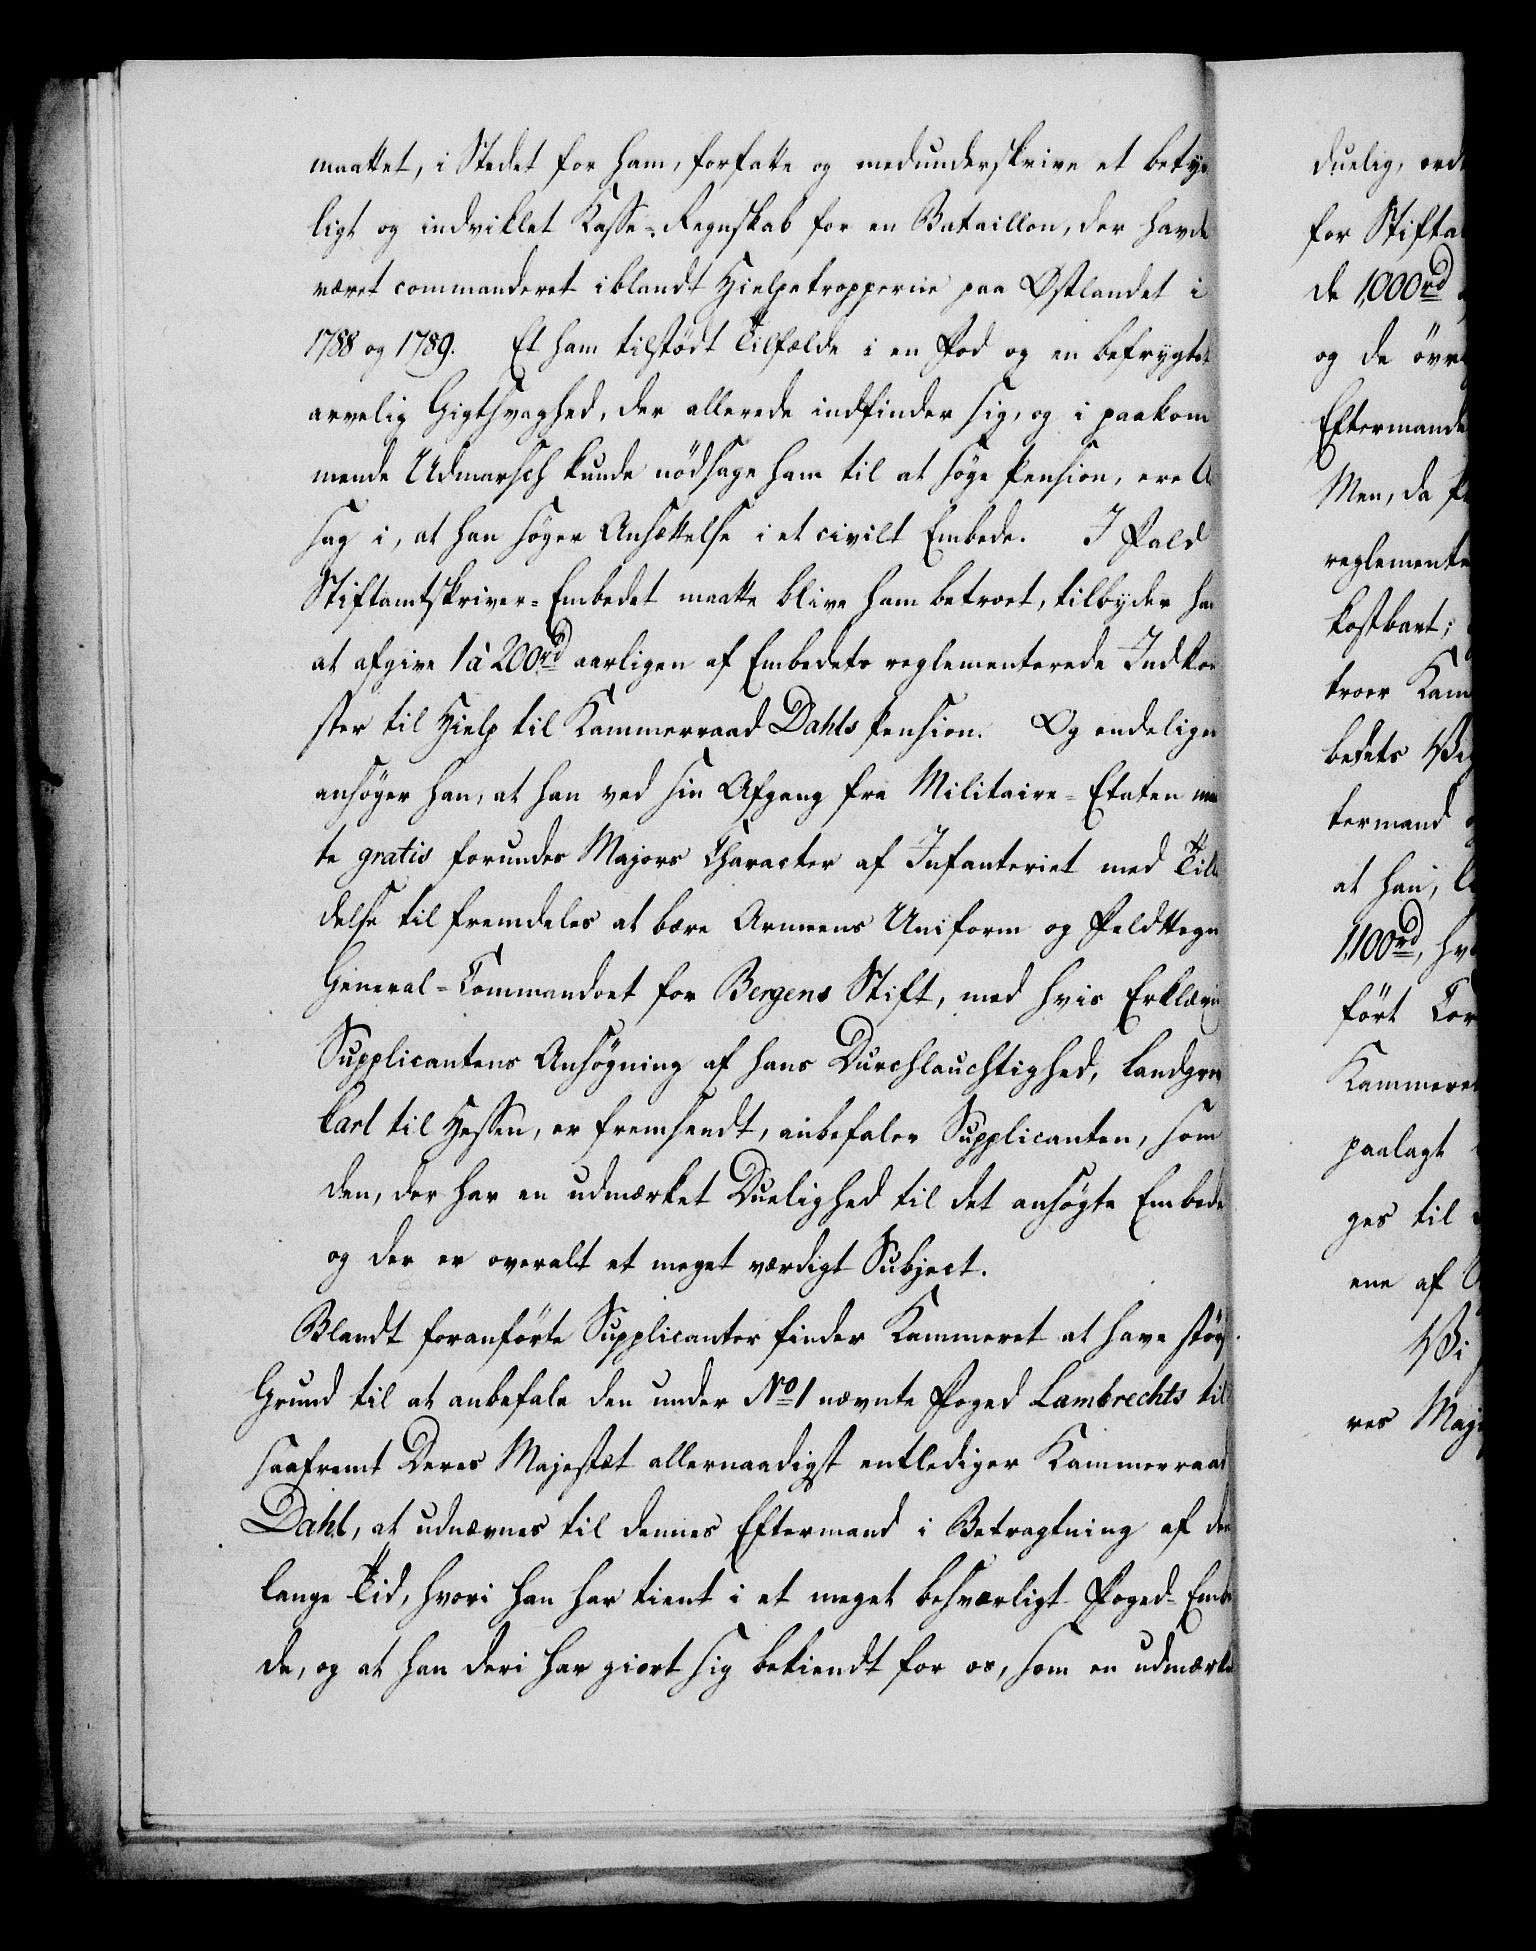 maattet, i Stedet for ham, forfatte og medunderskrive et betyd
ligt og indviklet Kasse-Regnskab for en Bataillon, der havde
været commanderet iblandt Hielpetropperne paa Østlandet i
1788 og 1789. Et ham tilstødt Tilfælde i en Fod og en befrygtet
arvelig Gigtsvaghed, der allerede indfinder sig, og i paakom
mende Udmarsch kunde nödsage ham til at söge Pension, ere A
sag i, at han söger Ansættelse i et civilt Embede. I Fald
Stiftamtskriver-Embedet maatte blive ham betroet, tilbyder ha
at afgive 1 à 200 rd aarligen af Embedets reglementerede Indkom
ster til Hielp til Kammerraad Dahls Pension. Og endeligen
ansöger han, at han ved sin Afgang fra Militaire-Etaten maa
te gratis forundes Majors Character af Infanteriet med Till
delse til fremdeles at bære Armeens Uniform og Feldttegn
General-Commandoet for Bergens Stift, med hvis Erklæring
Supplicantens Ansögning af hans Durchlauchtighed, Landgrev
Carl til Hessen, er fremsendt, anbefaler Supplicanten, som
den, der har en udmærket Duelighed til det ansögte Embede
og der er overalt et meget værdigt Subject.
Blandt foranförte Supplicanter finder Kammeret at have störst
Grund til at anbefale den under No 1 nævnte Foged Lambrechts til
saafremt Deres Majestæt allernaadigst entlediger Kammerraad
Dahl, at udnævnes til dennes Eftermand i Betragtning af den
lange Tid, hvori han har tient i et meget besværligt Foged-Embe
de, og at han deri har giort sig bekiendt for os, som en udmærket
duelig, ord
for Stifta
de 1000 rd
og de övri
Eftermande
Men, da
reglemente
kostbart;
troer Kam
bedets
termand
at han,
1100 rd, hv
fört Cor
Kammeret
paalagt
ges til
ene af
Vi
res Maj